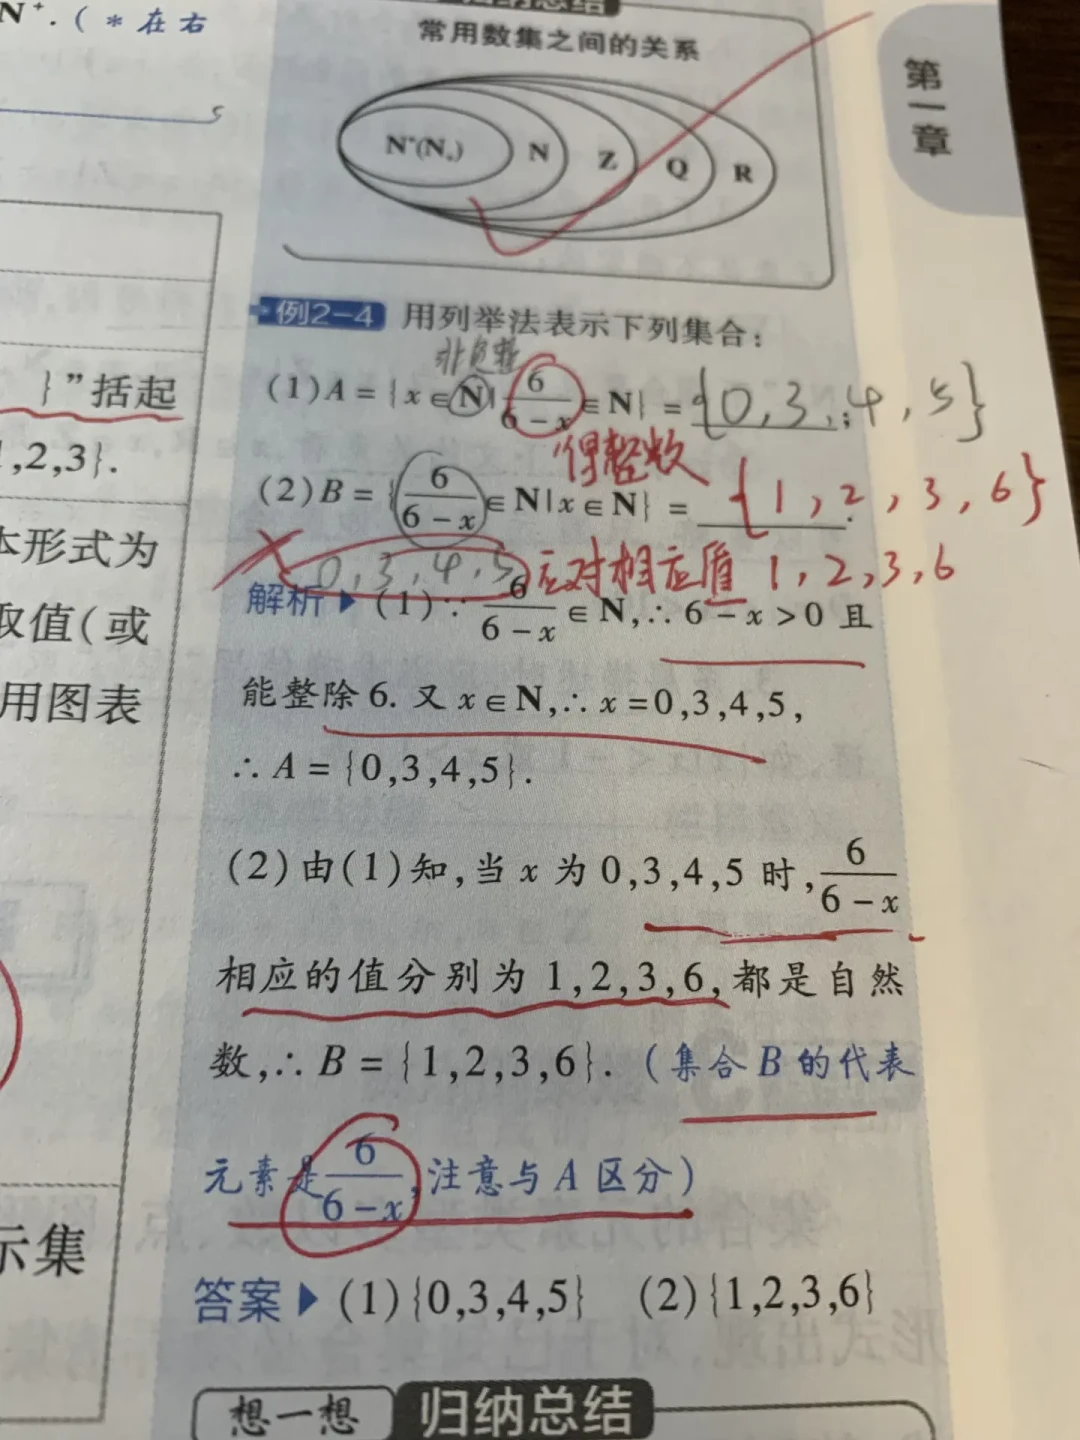 N⁺.(*在右
}”括起
1,2,3}.
本形式为
取值(或
用图表
示集
第一章
常用数集之间的关系
N*(N₊) N Z Q R
例2-4 用列举法表示下列集合:
非负整
(1)A={x∈N|6/(6-x)∈N}={0,3,4,5};
得整数
(2)B={6/(6-x)∈N|x∈N}={1,2,3,6}.
0,3,4,5 应对相应值 1,2,3,6
解析▶(1)∵6/(6-x)∈N,∴6-x>0且
能整除6.又x∈N,∴x=0,3,4,5,
∴A={0,3,4,5}.
(2)由(1)知,当x为0,3,4,5时,6/(6-x)
相应的值分别为1,2,3,6,都是自然
数,∴B={1,2,3,6}.(集合B的代表
元素是6/(6-x),注意与A区分)
答案▶(1){0,3,4,5} (2){1,2,3,6}
想一想 归纳总结